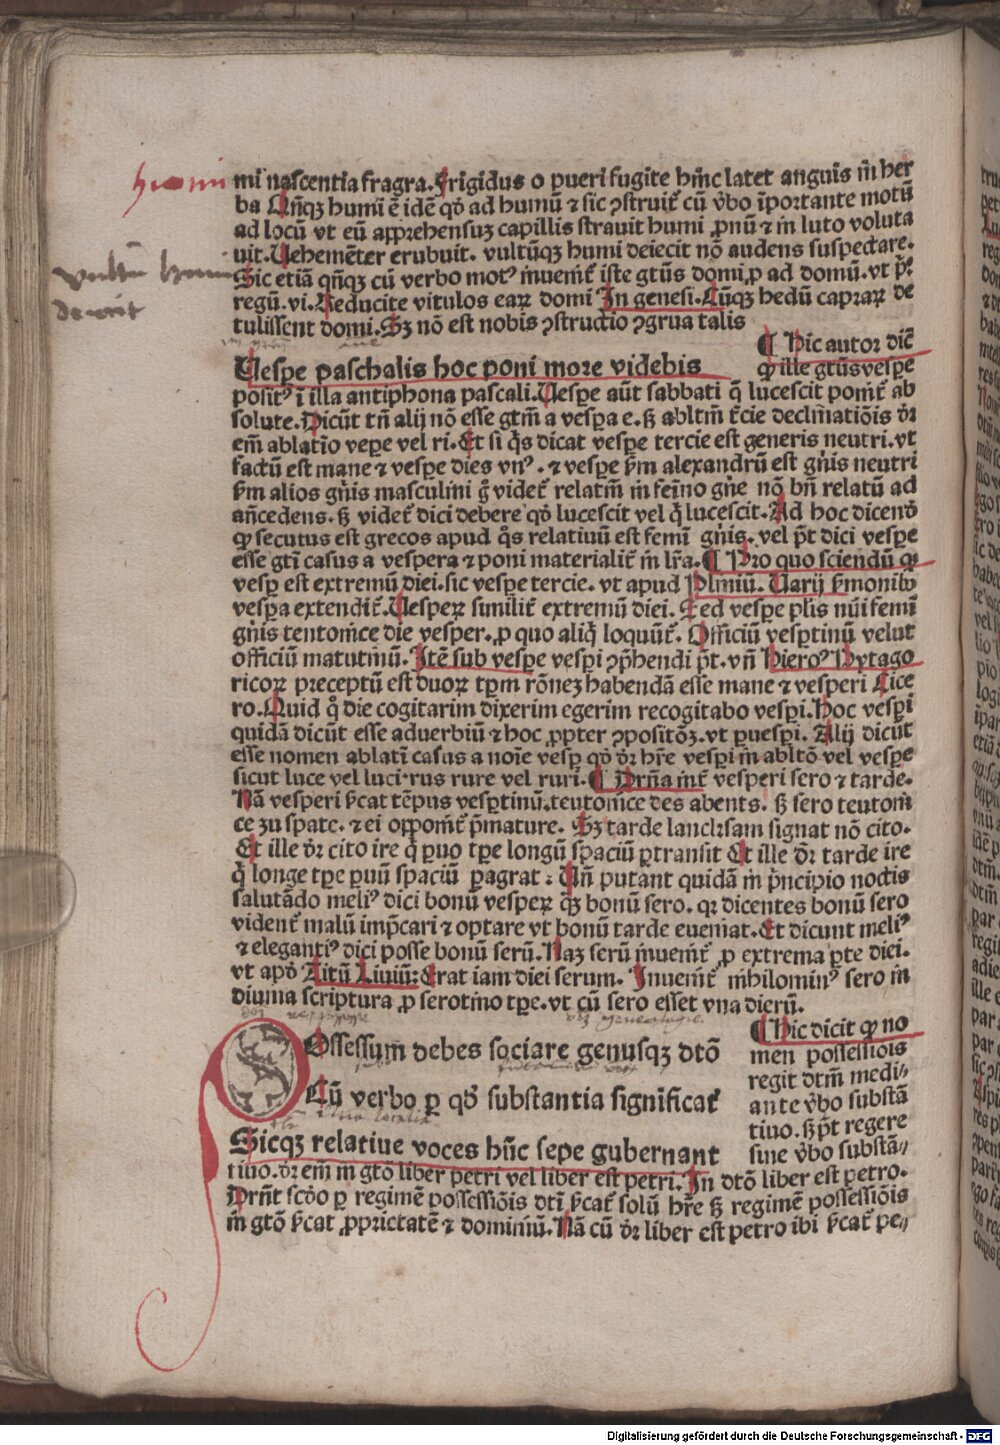 mi nascentia fragra. Frigidus o pueri fugite hinc latet anguis in her
ba Qñqz humi ē idē qđ ad humū ⁊ sic ↄstruit̄ cū v̄bo īportante motū
ad locū vt eū apprehensuz capillis strauit humi ꝓnū ⁊ in luto voluta
uit. Uehemēter erubuit. vultūqz humi deiecit nō audens suspectare.
Sic etiā qñqz cū verbo motꝰ inuenit̄ iste gtūs domi ꝓ ad domū. vt pͥ.
regū. vi. Reducite vitulos eaꝝ domi In genesi. Cūqz hedū capraꝝ de
tulissent domi. Sz nō est nobis ↄstructio ↄgrua talis
¶ Hic autor dic̄
Uespe paschalis hoc poni more videbis
ꝙ ille gtūs vespe
positꝰ ī illa antiphona pascali. Uespe aūt sabbati q̄ lucescit ponit̄ ab
solute. Dicūt tn̄ alij nō esse gtm̄ a vespa e. sꝫ abltm̄ t̄cie declinatiōis dr̄
em̄ ablatio vepe vel ri. Et si q̇s dicat vespe tercie est generis neutri. vt
factū est mane ⁊ vespe dies vnꝰ. ⁊ vespe ẜm alexandrū est gn̄is neutri
ẜm alios gn̄is masculini g̊ videt̄ relatm̄ in feīno gn̄e nō bn̄ relatū ad
an̄cedens. sꝫ videt̄ dici debere qđ lucescit vel q̇ lucescit. Ad hoc dicenđ
ꝙ secutus est grecos apud q̊s relatiuū est femī gn̄is. vel pt̄ dici vespe
esse gti casus a vespera ⁊ poni materialit̄ in lr̄a. ¶ Pro quo sciendū ꝙ
vesp est extremū diei. sic vespe tercie. vt apud Pliniū. Uarij ẜmonibꝰ
vespa extendit̄. Uespeꝝ similit̄ extremū diei. Sed vespe plis nūi femī
gn̄is tentonice die vesper. ꝓ quo aliq̇ loquūt̄. Officiū vesptinū velut
officiū matutinū. Itē sub vespe vespi ↄp̄hendi pt̄. vn̄ Hieroꝰ Pytago
ricoꝝ preceptū est duoꝝ tpm rōnez habendā esse mane ⁊ vesperi Cice
ro. Quid q̊ die cogitarim dixerim egerim recogitabo vespi. Hoc vespi
quidā dicūt esse aduerbiū ⁊ hoc ꝓpter ↄpositōꝫ. vt puespi. Alij dicūt
esse nomen ablati casus a noīe vesp qđ dr̄ hr̄e vespi in abltō vel vespe
sicut luce vel luci. rus rure vel ruri. ¶ Drn̄a int̄ vesperi sero ⁊ tarde.
Nā vesperi ẜcat tēpus vesptinū. teutonice des abents. sꝫ sero teutoni
ce zu spate. ⁊ ei opponit̄ p̄mature. Sz tarde lancksam signat nō cito.
Et ille dr̄ cito ire q̇ puo tpe longū spaciū ptransit Et ille dr̄ tarde ire
q̇ longe tpe puū spaciū pagrat: Un̄ putant quidā in p̄ncipio noctis
salutādo meliꝰ dici bonū vespeꝝ qꝫ bonū sero. qꝛ dicentes bonū sero
vident̄ malū imp̄cari ⁊ optare vt bonū tarde eueniat. Et dicunt meliꝰ
⁊ elegantiꝰ dici posse bonū serū. Naz serū inuenit̄ ꝓ extrema pte diei.
vt apđ Titū Liuiū: Erat iam diei serum. Inuenit̄ nihilominꝰ sero in
diuina scriptura ꝓ serotino tpe. vt cū sero esset vna dierū.
¶ Hic dicit ꝙ no
Ossessum debes sociare genusqz dtō
men possessiōis
regit dtm̄ medi⸗
Cū verbo ꝑ qđ substantia significat̄
ante v̄bo substā
tiuo. sꝫ pt̄ regere
Sicqz relatiue voces hūc sepe gubernant
sine v̄bo substā⸗
tiuo. dr̄ em̄ in gtō liber petri vel liber est petri. In dtō liber est petro.
Drn̄t scđo ꝑ regimē possessiōis dti ẜcat̄ solū hr̄e sꝫ regimē possessiōis
in gtō ẜcat ꝓprietatē ⁊ dominiū. Nā cū dr̄ liber est petro ibi ẜcat̄ pe⸗
Digitalisierung gefördert durch die Deutsche Forschungsgemeinschaft - DFG